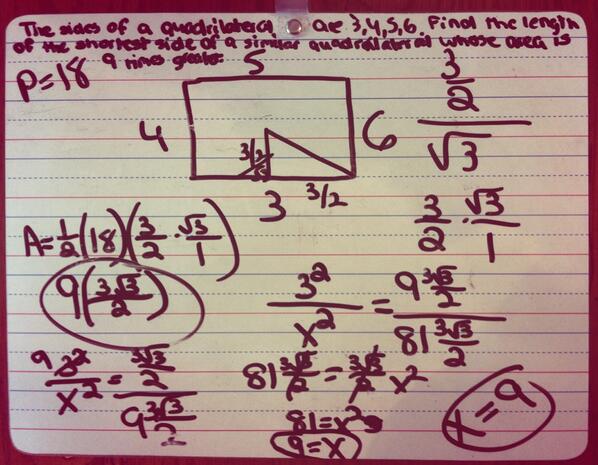 The sides of a quadrilateral are 3,4,5,6. Find the length
of the shortest side of a similar quadrilateral whose area is
9 times greater.
P=18
5
4
6
3/2
3
3/2
3
2
√3
3/2 · √3/1
A=1/2(18)(3/2 · √3/1)
9(3√3/2)
3²/x² = 9 3√3/2 / 81 3√3/2
9 3²/x² = 3√3/2 / 9 3√3/2
81 3√3/2 = 3√3/2 x²
81=x²
9=x
x=9